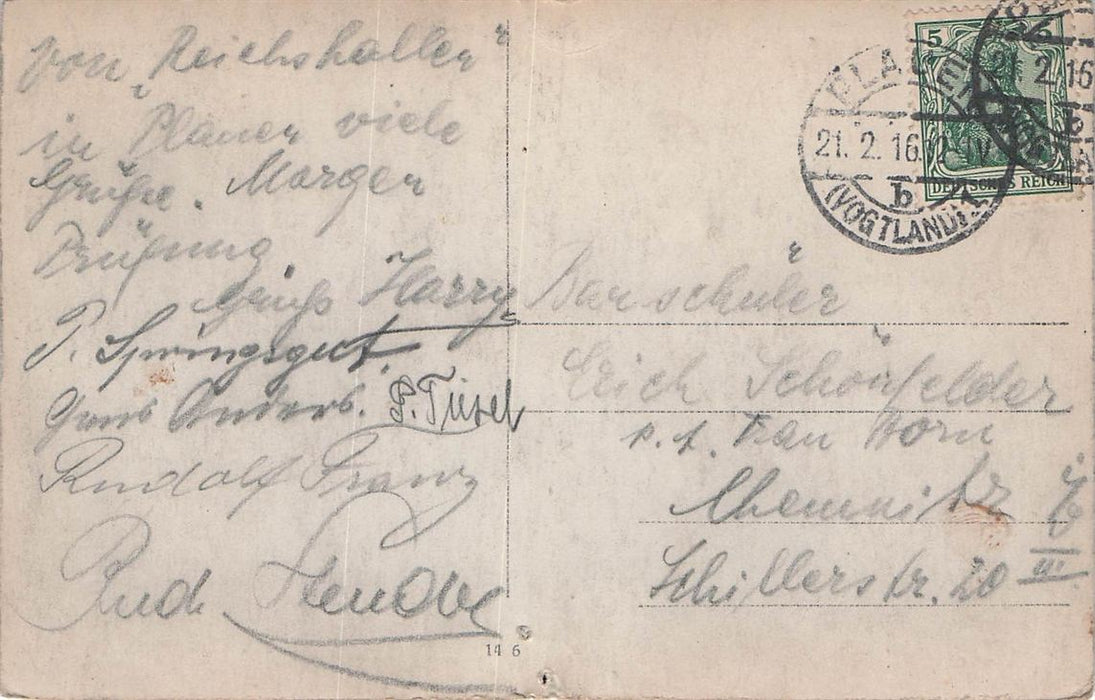 von „Reichshallen“
in Plauen viele
Grüße. Morgen
Prüfung.
Gruß Harry
P. Springsgut.
Hans Anders. P. Türel
Rudolf Franz
Rud.
14 6
Bauschüler
Erich Schönfelder
p. A. Frau Born
Chemnitz
Schillerstr. 20 III
5
DEUTSCHES REICH
PLAUEN
21. 2. 16
b
(VOGTLAND) 1
21. 2. 16
b